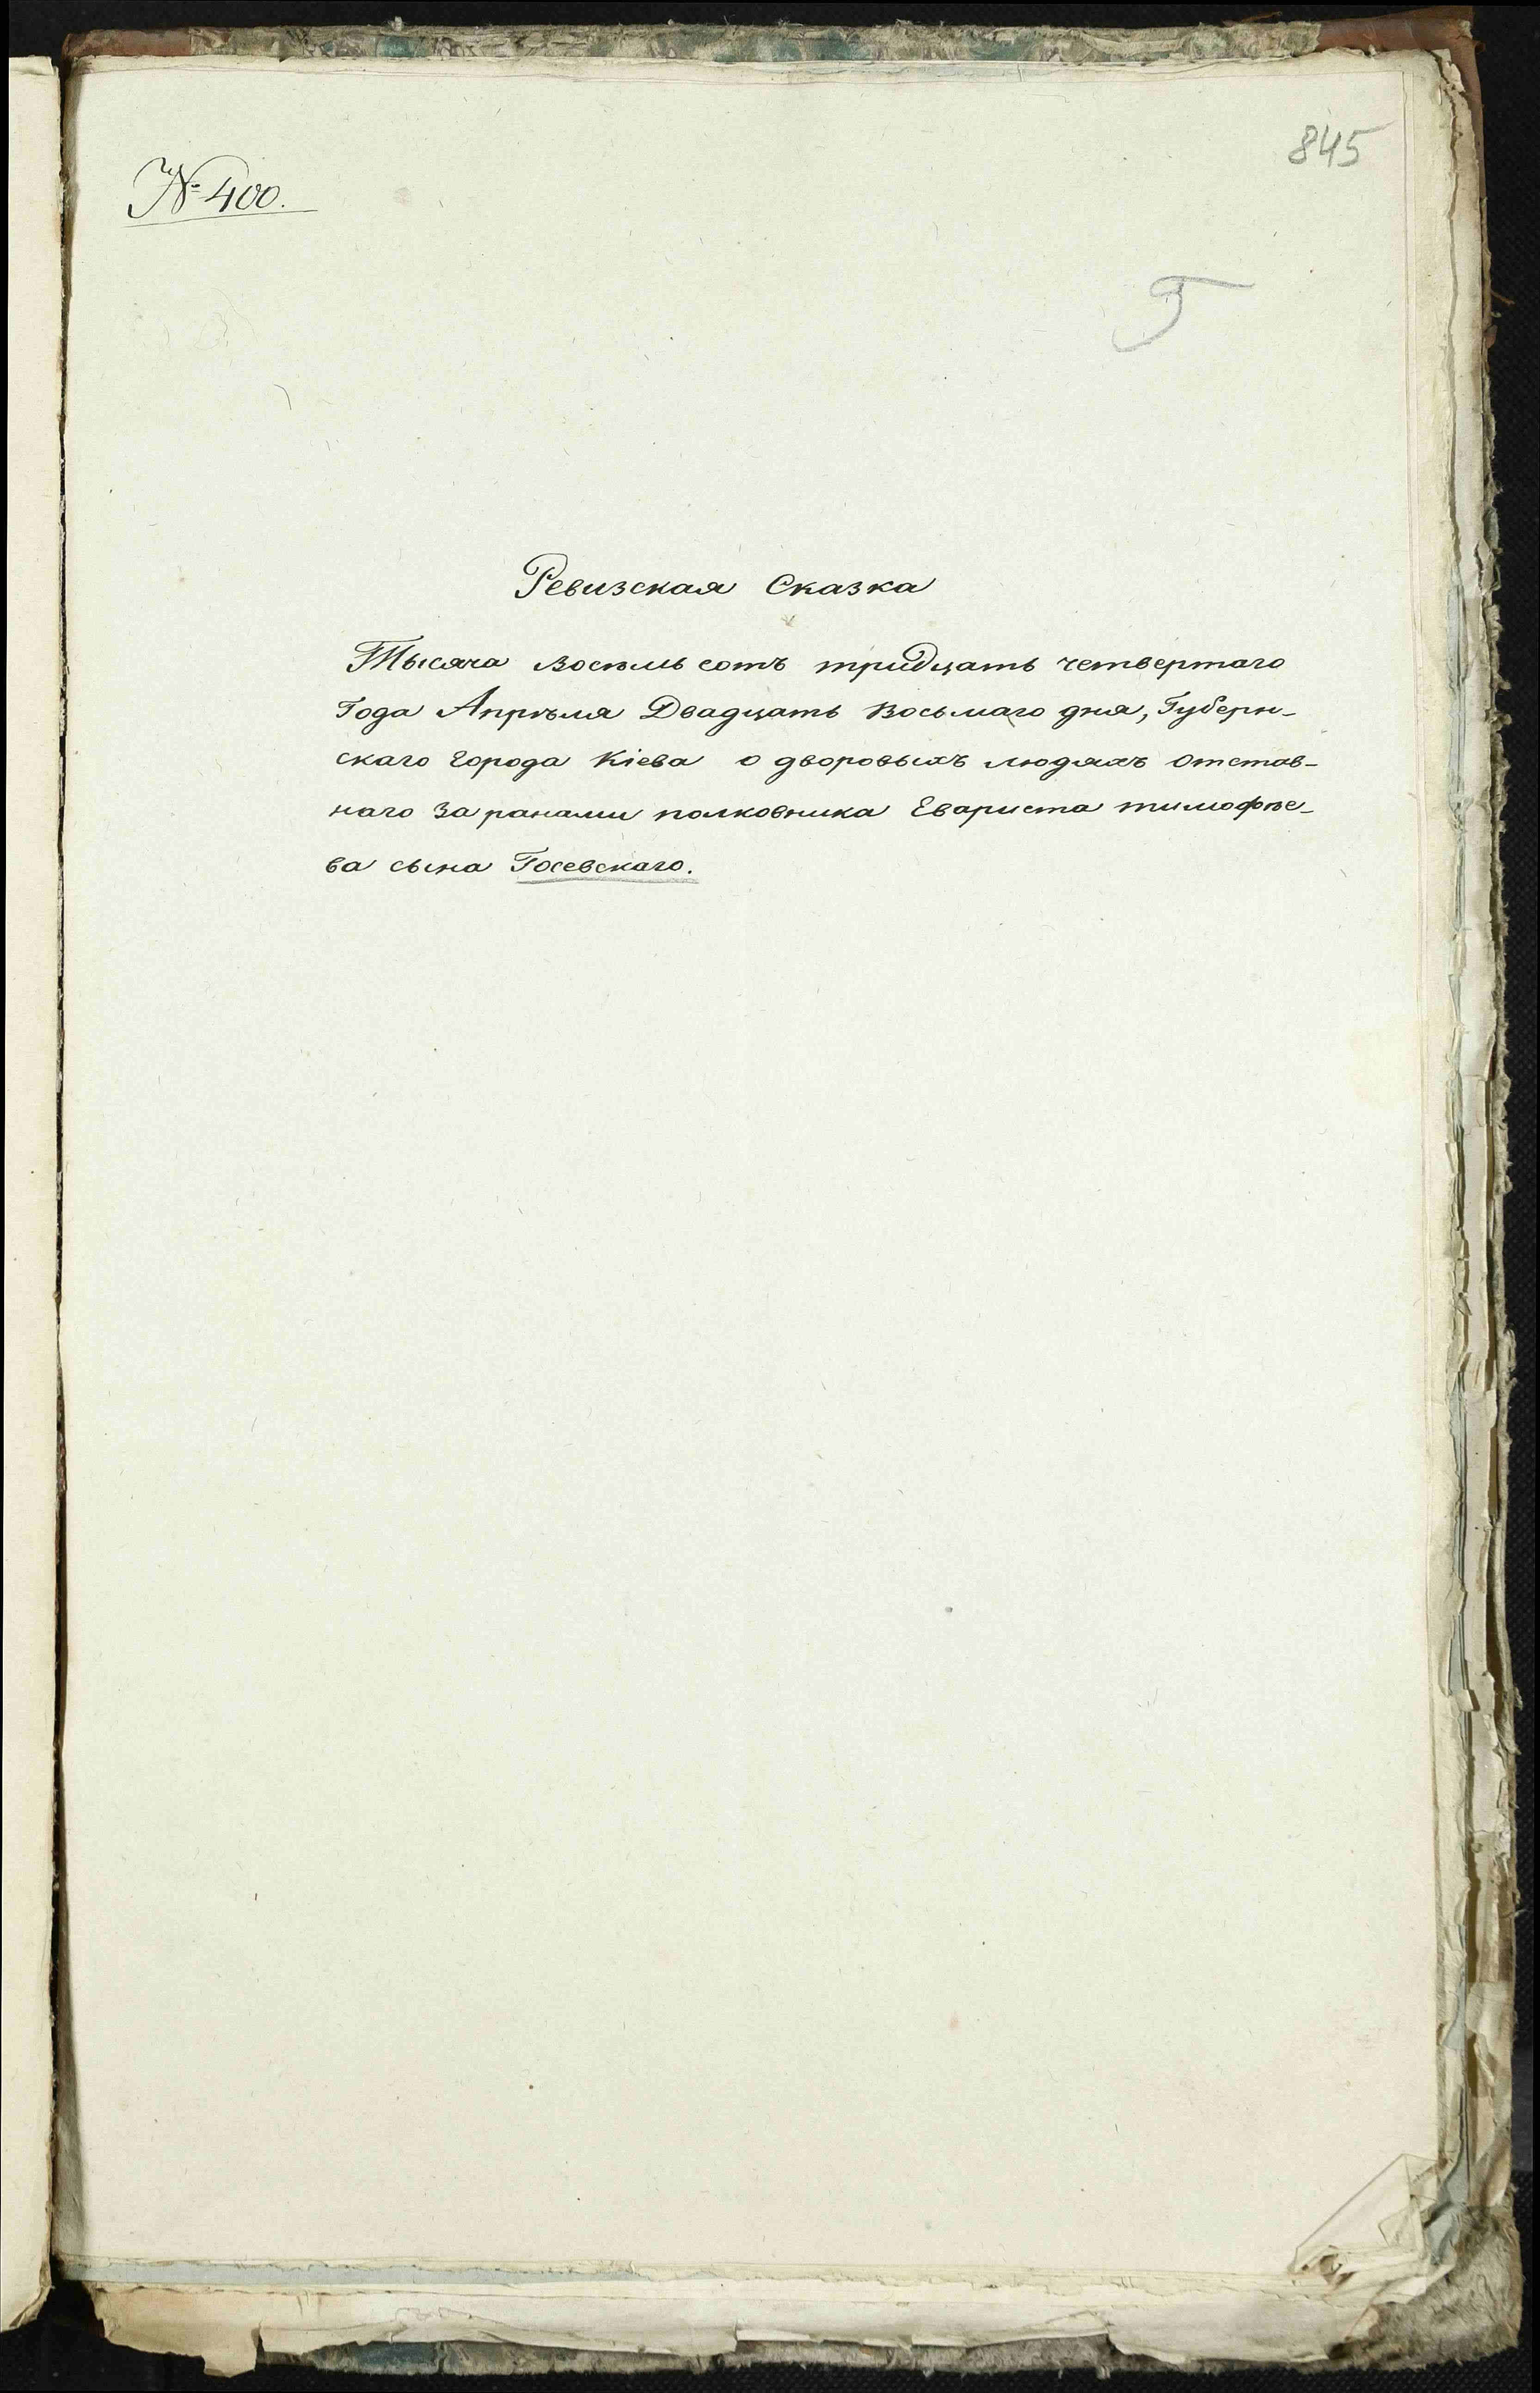 845
№ 400.
5
Ревизская Сказка
Тысяча Восемь сотъ тридцать четвертаго
Года Апрѣля Двадцать Восьмаго дня, Губерн-
скаго Города Кіева о дворовыхъ людяхъ Отстав-
наго За ранами полковника Евариста тимофѣе-
ва сына Госевскаго.